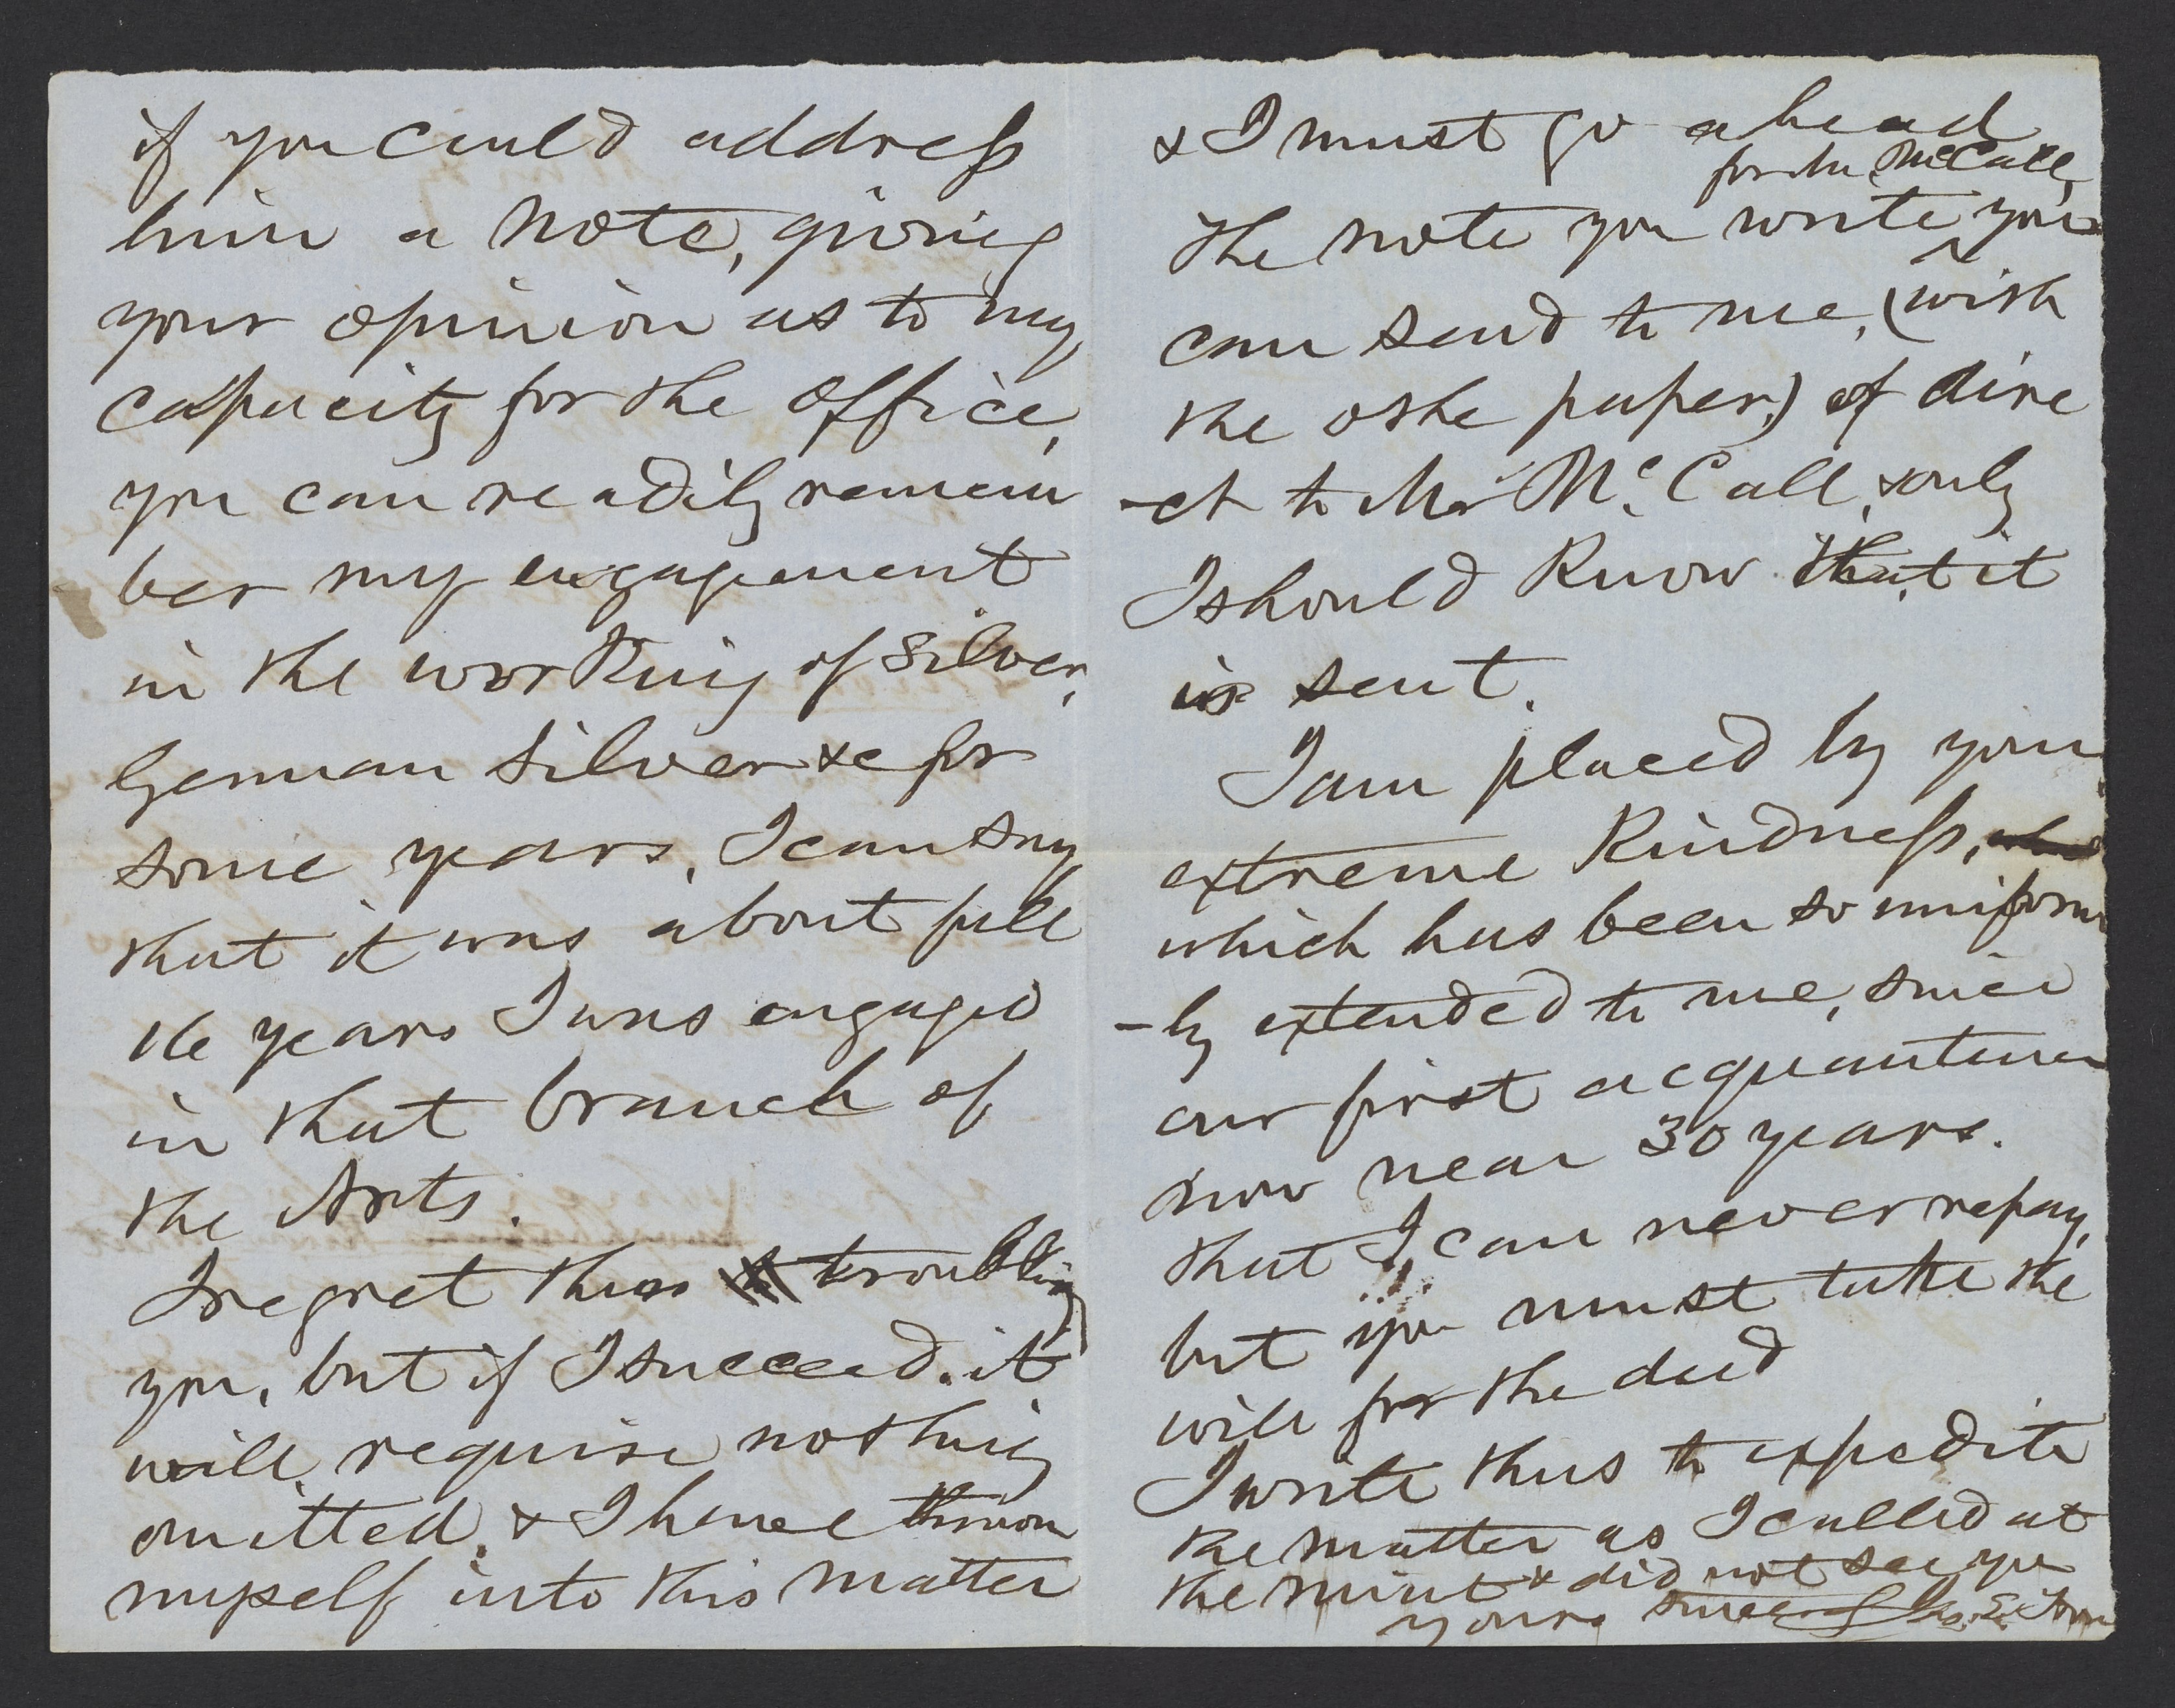 if you could address
him a note, giving
your opinion as to my
capacity for the office,
you can readily remem
ber my engagement
in the working of Silver,
German Silver &c for
some years, I can say
that it was about full
16 years I was engaged
in that branch of
the Arts.
I regret thus troubling
you, but if I succeed. it
will require nothing
omitted. & I have thrown
myself into this matter
& I must go ahead
for Mr McCall,
The note you write you
can send to me, (with
the othe paper) of dire
-ct to Mr McCall, & only
I should Know that it
is sent.
I am placed by your
extreme Kindness,
which has been so uniform
-ly extended to me, since
our first acquantence
now near 30 years.
that I can never repay,
but you must take the
will for the deed
I write thus to expedite
the matter as I called at
the mint & did not see you
yours